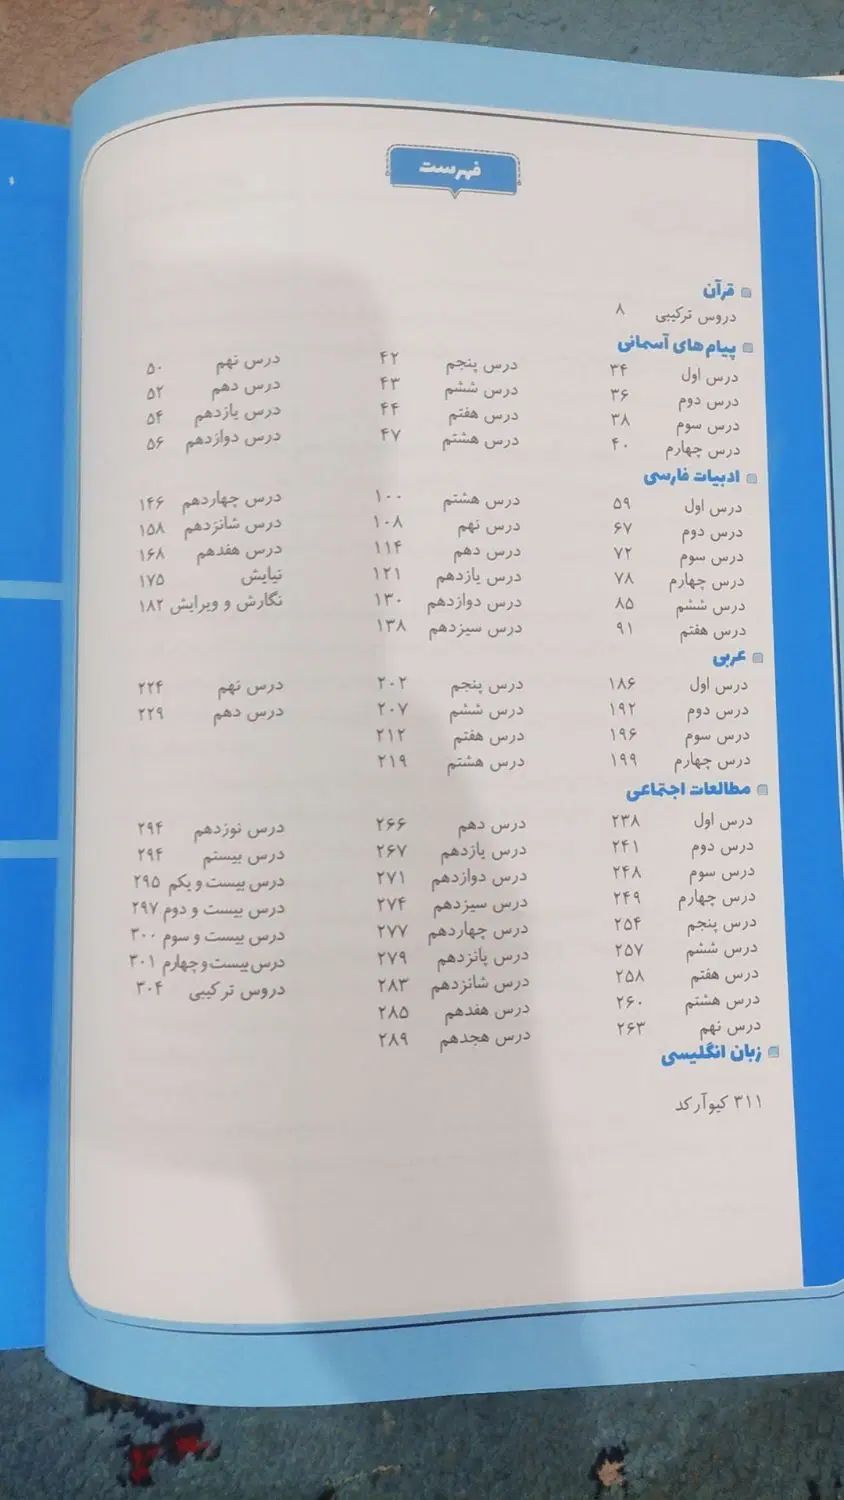 فهرست
قرآن
دروس ترکیبی ۸
پیام های آسمانی
درس اول ۳۴
درس دوم ۳۶
درس سوم ۳۸
درس چهارم ۴۰
درس پنجم ۴۲
درس ششم ۴۳
درس هفتم ۴۴
درس هشتم ۴۷
درس نهم ۵۰
درس دهم ۵۲
درس یازدهم ۵۴
درس دوازدهم ۵۶
ادبیات فارسی
درس اول ۵۹
درس دوم ۶۷
درس سوم ۷۲
درس چهارم ۷۸
درس ششم ۸۵
درس هفتم ۹۱
درس هشتم ۱۰۰
درس نهم ۱۰۸
درس دهم ۱۱۴
درس یازدهم ۱۲۱
درس دوازدهم ۱۳۰
درس سیزدهم ۱۳۸
درس چهاردهم ۱۴۶
درس شانزدهم ۱۵۸
درس هفدهم ۱۶۸
نیایش ۱۷۵
نگارش و ویرایش ۱۸۲
عربی
درس اول ۱۸۶
درس دوم ۱۹۲
درس سوم ۱۹۶
درس چهارم ۱۹۹
درس پنجم ۲۰۲
درس ششم ۲۰۷
درس هفتم ۲۱۲
درس هشتم ۲۱۹
درس نهم ۲۲۴
درس دهم ۲۲۹
مطالعات اجتماعی
درس اول ۲۳۸
درس دوم ۲۴۱
درس سوم ۲۴۸
درس چهارم ۲۴۹
درس پنجم ۲۵۴
درس ششم ۲۵۷
درس هفتم ۲۵۸
درس هشتم ۲۶۰
درس نهم ۲۶۳
درس دهم ۲۶۶
درس یازدهم ۲۶۷
درس دوازدهم ۲۷۱
درس سیزدهم ۲۷۴
درس چهاردهم ۲۷۷
درس پانزدهم ۲۷۹
درس شانزدهم ۲۸۳
درس هفدهم ۲۸۵
درس هجدهم ۲۸۹
درس نوزدهم ۲۹۴
درس بیستم ۲۹۴
درس بیست و یکم ۲۹۵
درس بیست و دوم ۲۹۷
درس بیست و سوم ۳۰۰
درس بیست و چهارم ۳۰۱
دروس ترکیبی ۳۰۴
زبان انگلیسی
۳۱۱ کیوآرکد